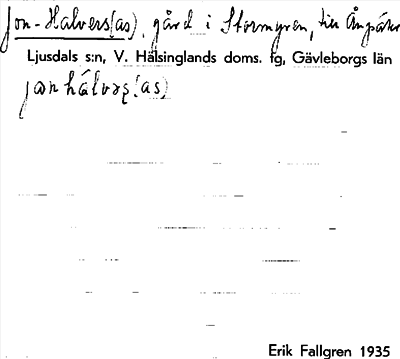 Jon-Halvers(as), gård i Stormyren, till Ånpära
Ljusdals s:n, V. Hälsinglands doms. fg, Gävleborgs län
jɷn hálvεʂ(as)
Erik Fallgren 1935